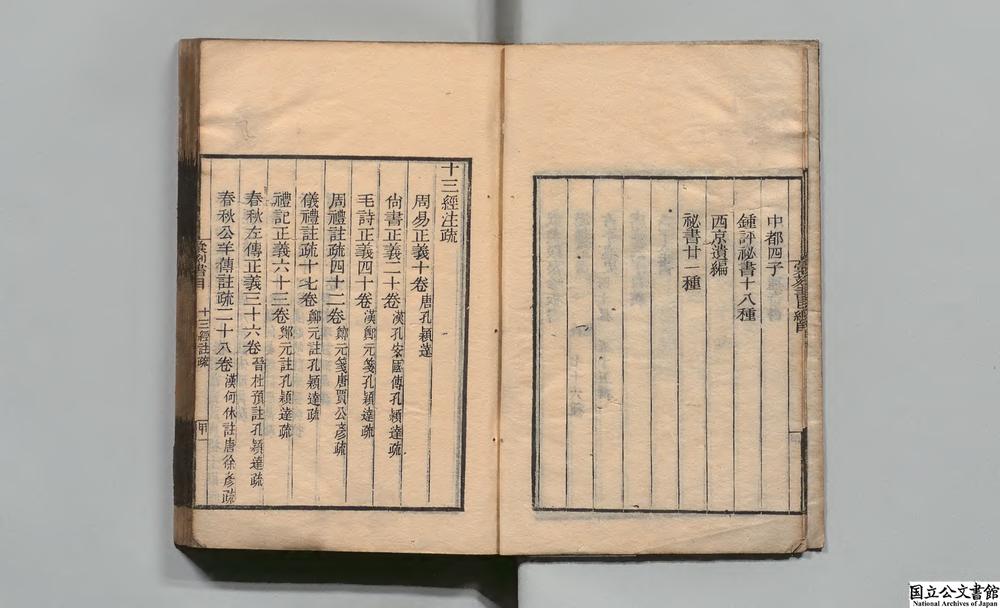 中都四子
鍾評祕書十八種
西京遺編
祕書廿一種
十三經注疏
周易正義十卷 唐孔穎達
尙書正義二十卷 漢孔安國傳孔穎達疏
毛詩正義四十卷 漢鄭元箋孔穎達疏
周禮註疏四十二卷 鄭元箋唐賈公彥疏
儀禮註疏十七卷 鄭元註孔穎達疏
禮記正義六十三卷 鄭元註孔穎達疏
春秋左傳正義三十六卷 晉杜預註孔穎達疏
春秋公羊傳註疏二十八卷 漢何休註唐徐彥疏
彙刻書目 十三經註疏
国立公文書館
National Archives of Japan